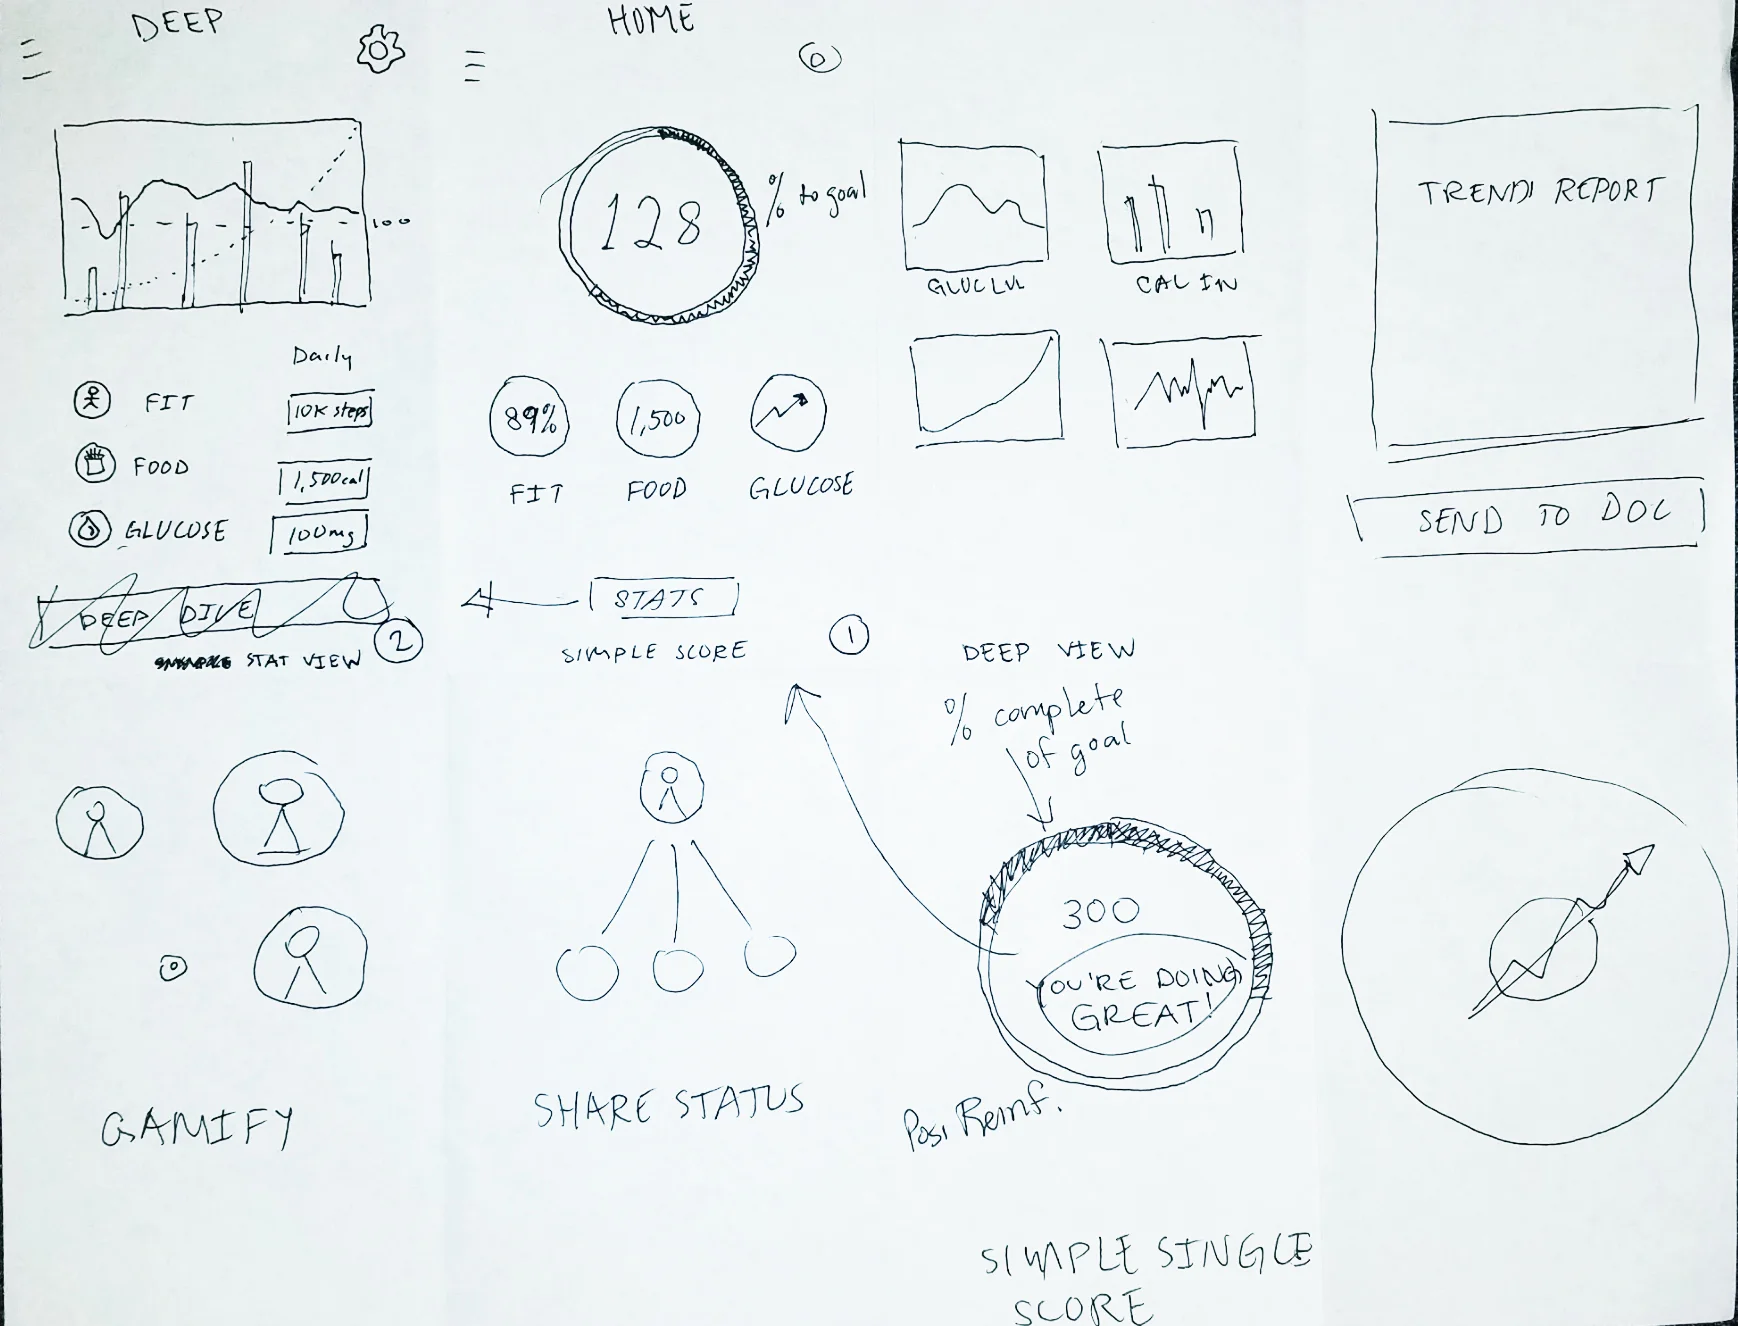 DEEP
100
Daily
FIT
10K steps
FOOD
1,500cal
GLUCOSE
100mg
DEEP DIVE
2
STAT VIEW
HOME
128
% to goal
89%
1,500
FIT
FOOD
GLUCOSE
STATS
SIMPLE SCORE
1
GLUC LVL
CAL IN
DEEP VIEW
TREND REPORT
SEND TO DOC
GAMIFY
SHARE STATUS
% complete
of goal
300
YOU'RE DOING
GREAT!
Posi Reinf.
SIMPLE SINGLE
SCORE